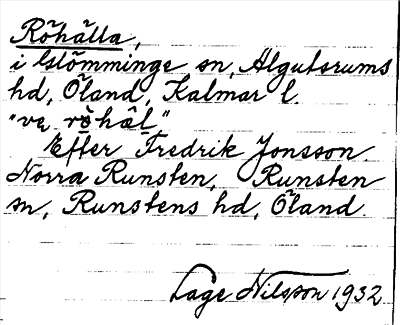 Röhälla,
i Glömminge sn, Algutsrums
hd, Öland, Kalmar l.
"ve. rö̀hâl"
Efter Fredrik Jonsson.
Norra Runsten, Runsten
sn, Runstens hd, Öland.
Lage Nilsson 1932